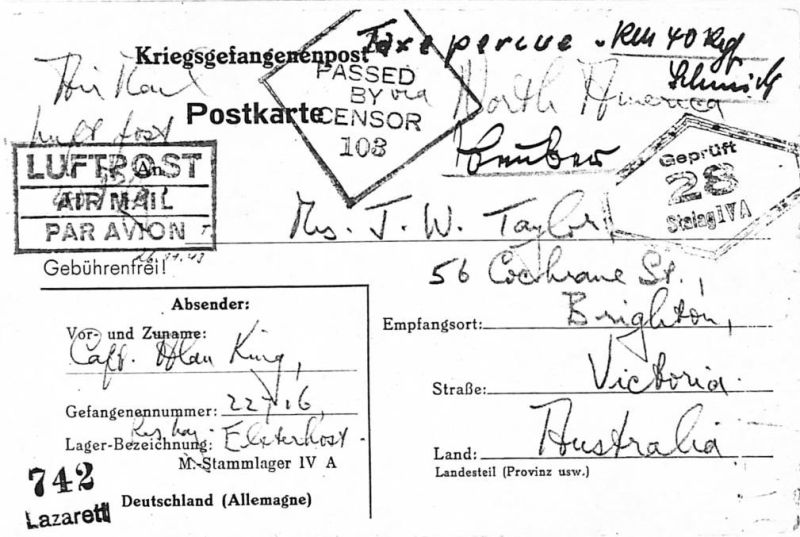 Kriegsgefangenenpost
Taxe percue. RM 40 Rpf
Schmidt
Air Mail
PASSED
BY
CENSOR
103
via North America
Postkarte
Luft Post
LUFTPOST
AIR MAIL
PAR AVION
An
Geprüft
28
Stalag IV A
Mrs. J. W. Taylor,
Gebührenfrei!
56 Cochrane St.,
Absender:
Vor- und Zuname:
Capt. Alan King,
Empfangsort: Brighton,
Straße: Victoria.
Gefangenennummer:
Lager-Bezeichnung: Elsterhorst.
M.-Stammlager IV A
Land: Australia
Landesteil (Provinz usw.)
742
Lazarett
Deutschland (Allemagne)